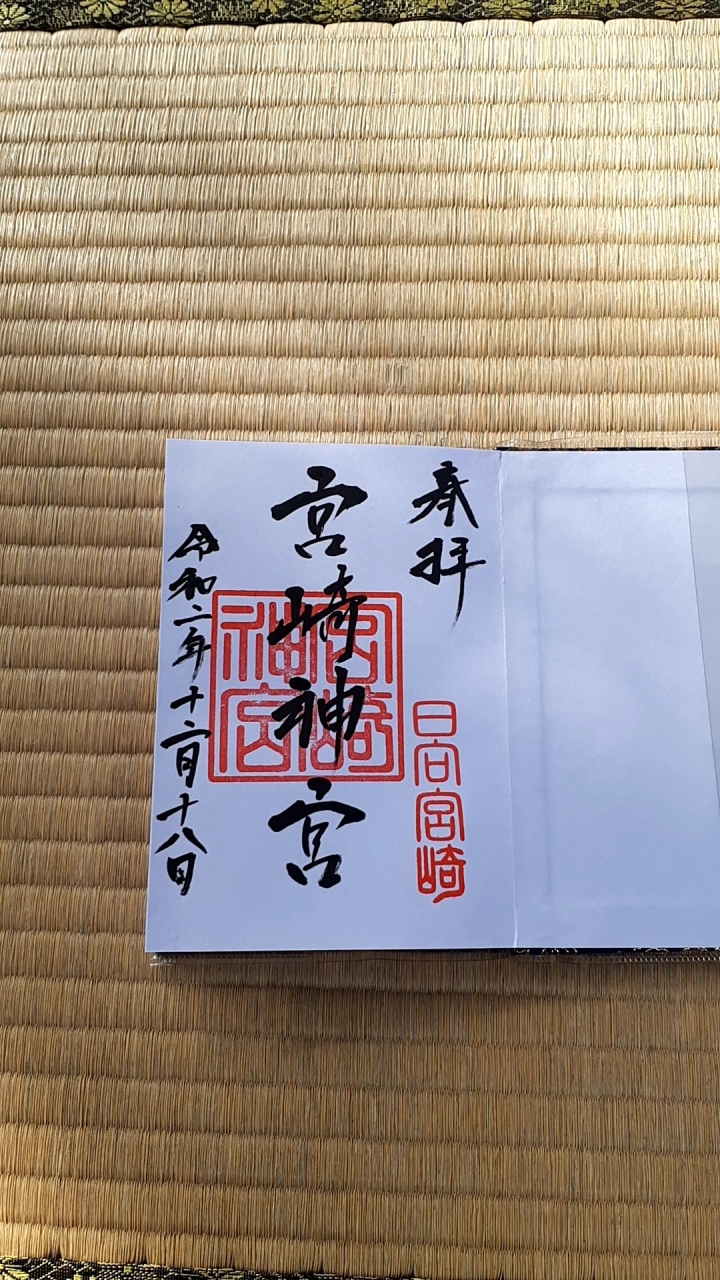 奉拝
日向宮崎
宮崎神宮
宮崎神宮
令和二年十二月十八日